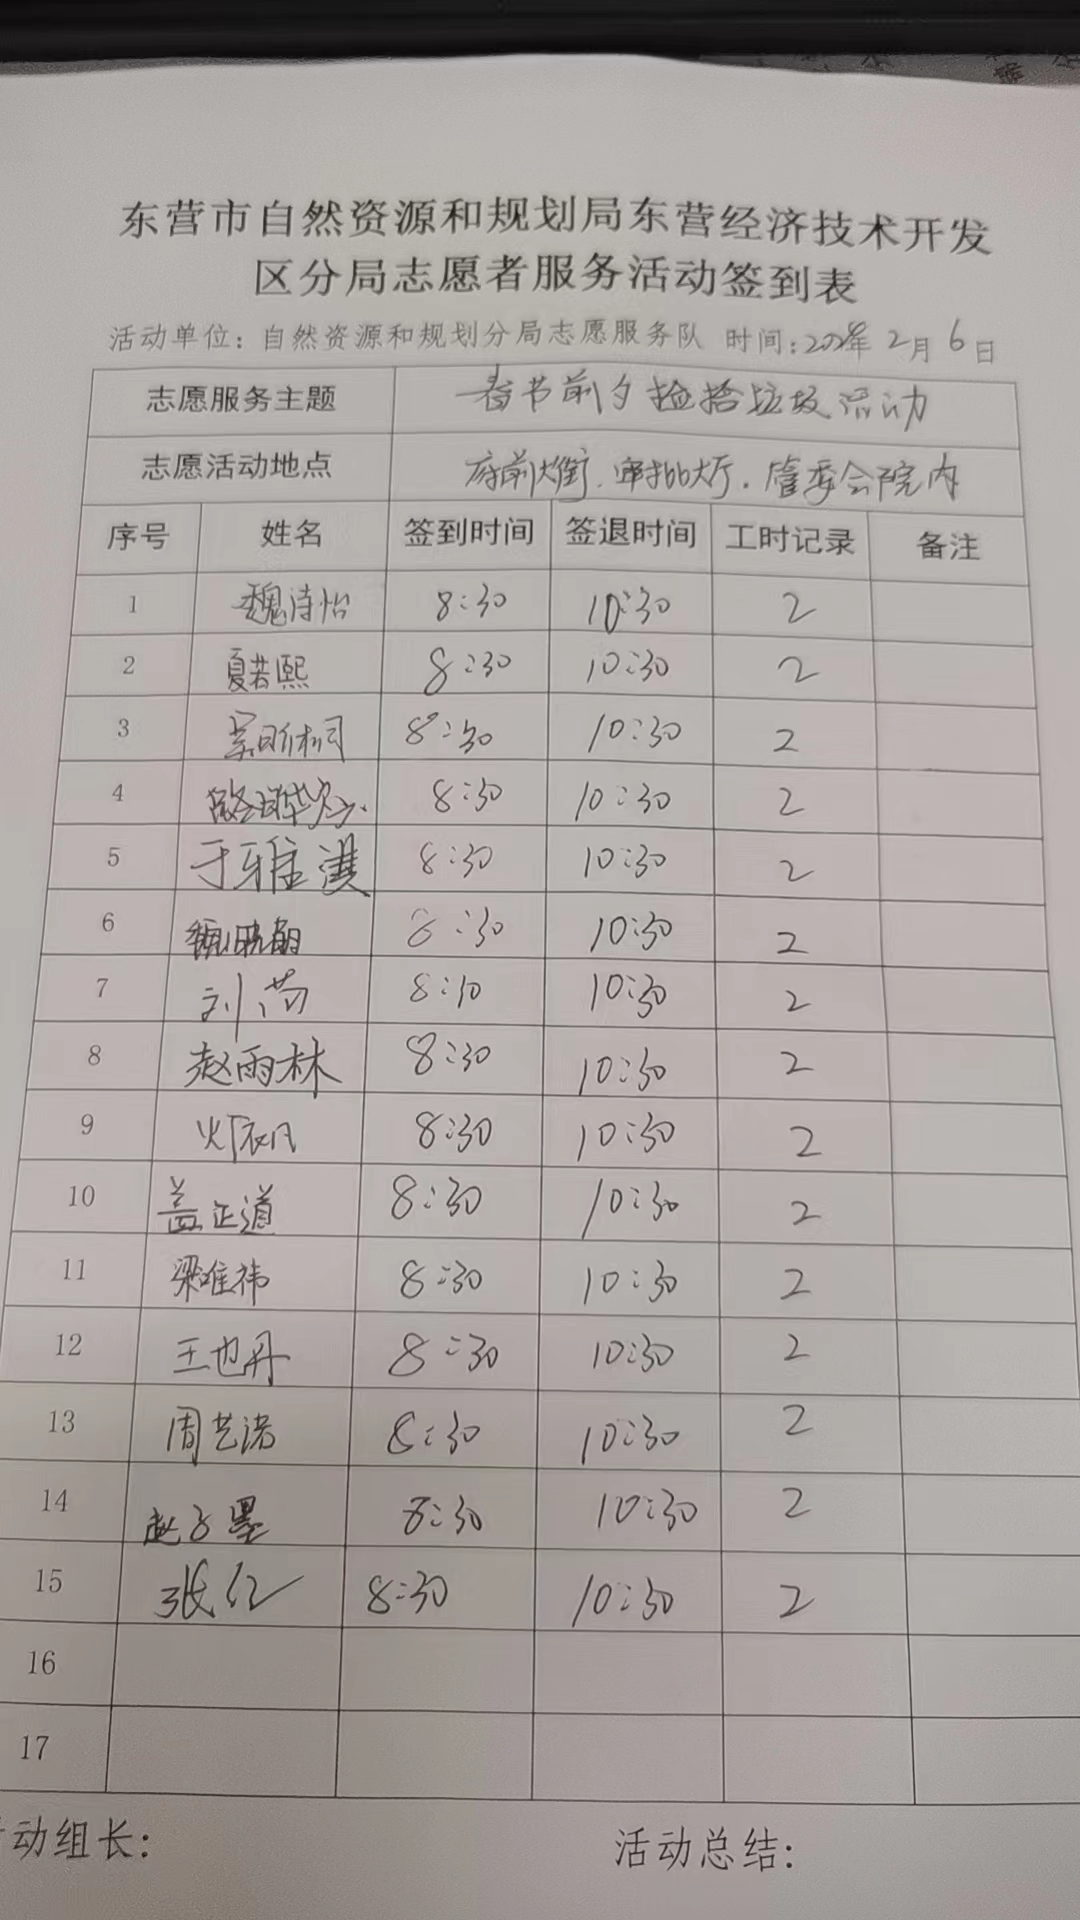 东营市自然资源和规划局东营经济技术开发
区分局志愿者服务活动签到表
活动单位：自然资源和规划分局志愿服务队 时间：2024年 2月 6日
志愿服务主题 春节前夕捡拾垃圾活动
志愿活动地点 府前大街、审批大厅、管委会院内
序号 姓名 签到时间 签退时间 工时记录 备注
1 魏诗怡 8:30 10:30 2
2 夏若熙 8:30 10:30 2
3 8:30 10:30 2
4 8:30 10:30 2
5 于雅淇 8:30 10:30 2
6 8:30 10:30 2
7 刘芮 8:30 10:30 2
8 赵雨林 8:30 10:30 2
9 8:30 10:30 2
10 盖正道 8:30 10:30 2
11 梁唯祎 8:30 10:30 2
12 王也丹 8:30 10:30 2
13 周艺诺 8:30 10:30 2
14 赵子墨 8:30 10:30 2
15 8:30 10:30 2
16
17
动组长：
活动总结：